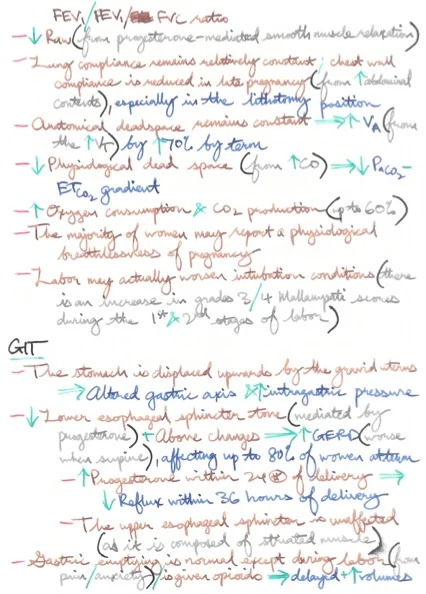 FEV₁/FEV₁/FVC ratio
- ↓ Raw (from progesterone-mediated smooth muscle relaxation)
- Lung compliance remains relatively constant; chest wall
compliance is reduced in late pregnancy (from ↑ abdominal
contents), especially in the lithotomy position
- Anatomical deadspace remains constant ⇒ ↑ VA (from
the ↑ VT) by ↑ 70% by term
- ↓ Physiological dead space (from ↑ CO) ⇒ ↓ PaCO₂-
ETCO₂ gradient
- ↑ Oxygen consumption & CO₂ production (up to 60%)
- The majority of women may report a physiological
breathlessness of pregnancy
- Labor may actually worsen intubation conditions (there
is an increase in grades 3/4 Mallampati scores
during the 1st & 2nd stages of labor)
GIT
- The stomach is displaced upwards by the gravid uterus
⇒ Altered gastric axis & ↑ intragastric pressure
- ↓ Lower esophageal sphincter tone (mediated by
progesterone) + Above changes ⇒ ↑ GERD (worse
when supine), affecting up to 80% of women at term
- ↑ Progesterone within 24 of delivery ⇒
↓ Reflux within 36 hours of delivery
- The upper esophageal sphincter is unaffected
(as it is composed of striated muscle)
- Gastric emptying is normal except during labor (from
pain/anxiety)/is given opioids ⇒ delayed + ↑ volumes